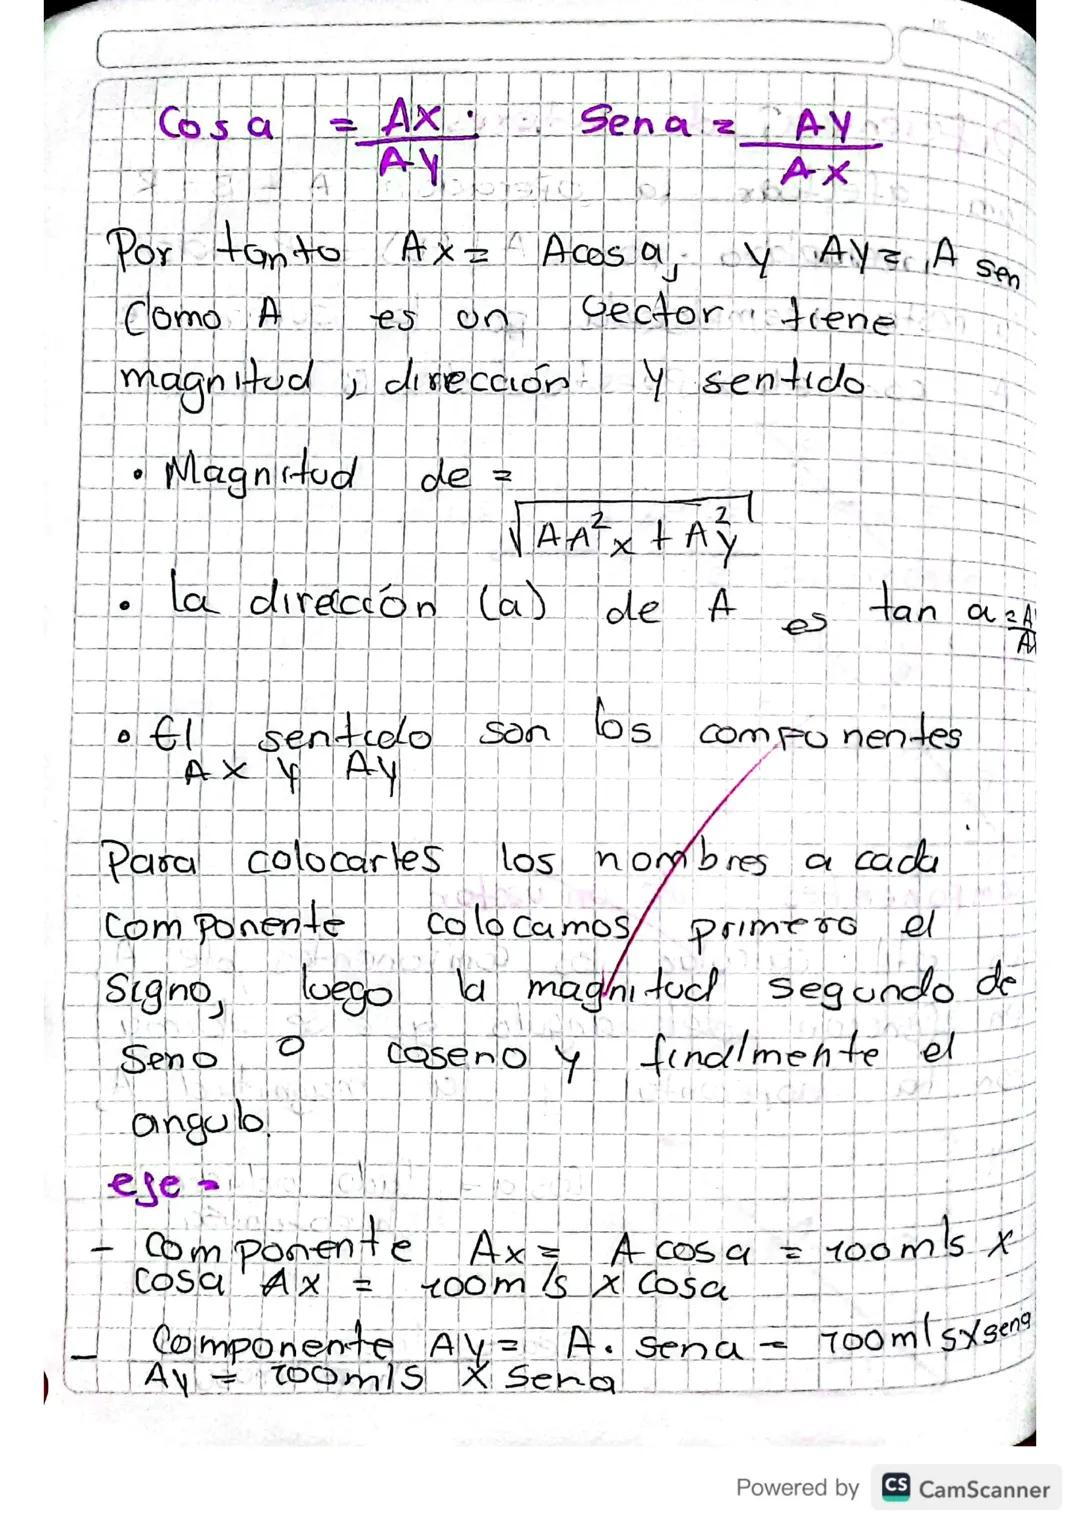 Cos a = AX / AY    Sen a = AY / AX
Por tanto AX = A cos a, y AY = A sen
Como A es un vector tiene
magnitud, dirección y sentido
• Magnitud de =
√AA²x + A²y
• la dirección (a) de A es tan a = A / A
• El sentido son los componentes
AX y AY
Para colocarles los nombres a cada
componente colocamos primero el
signo, luego la magnitud segundo de
seno o coseno y finalmente el
angulo.
eje =
- Componente Ax = A cos a = 100m/s x
cosa AX = 100m/s x Cosa
- Componente AY = A. sena = 100m/s x sena
AY = 100m/s x Sena
Powered by CS CamScanner